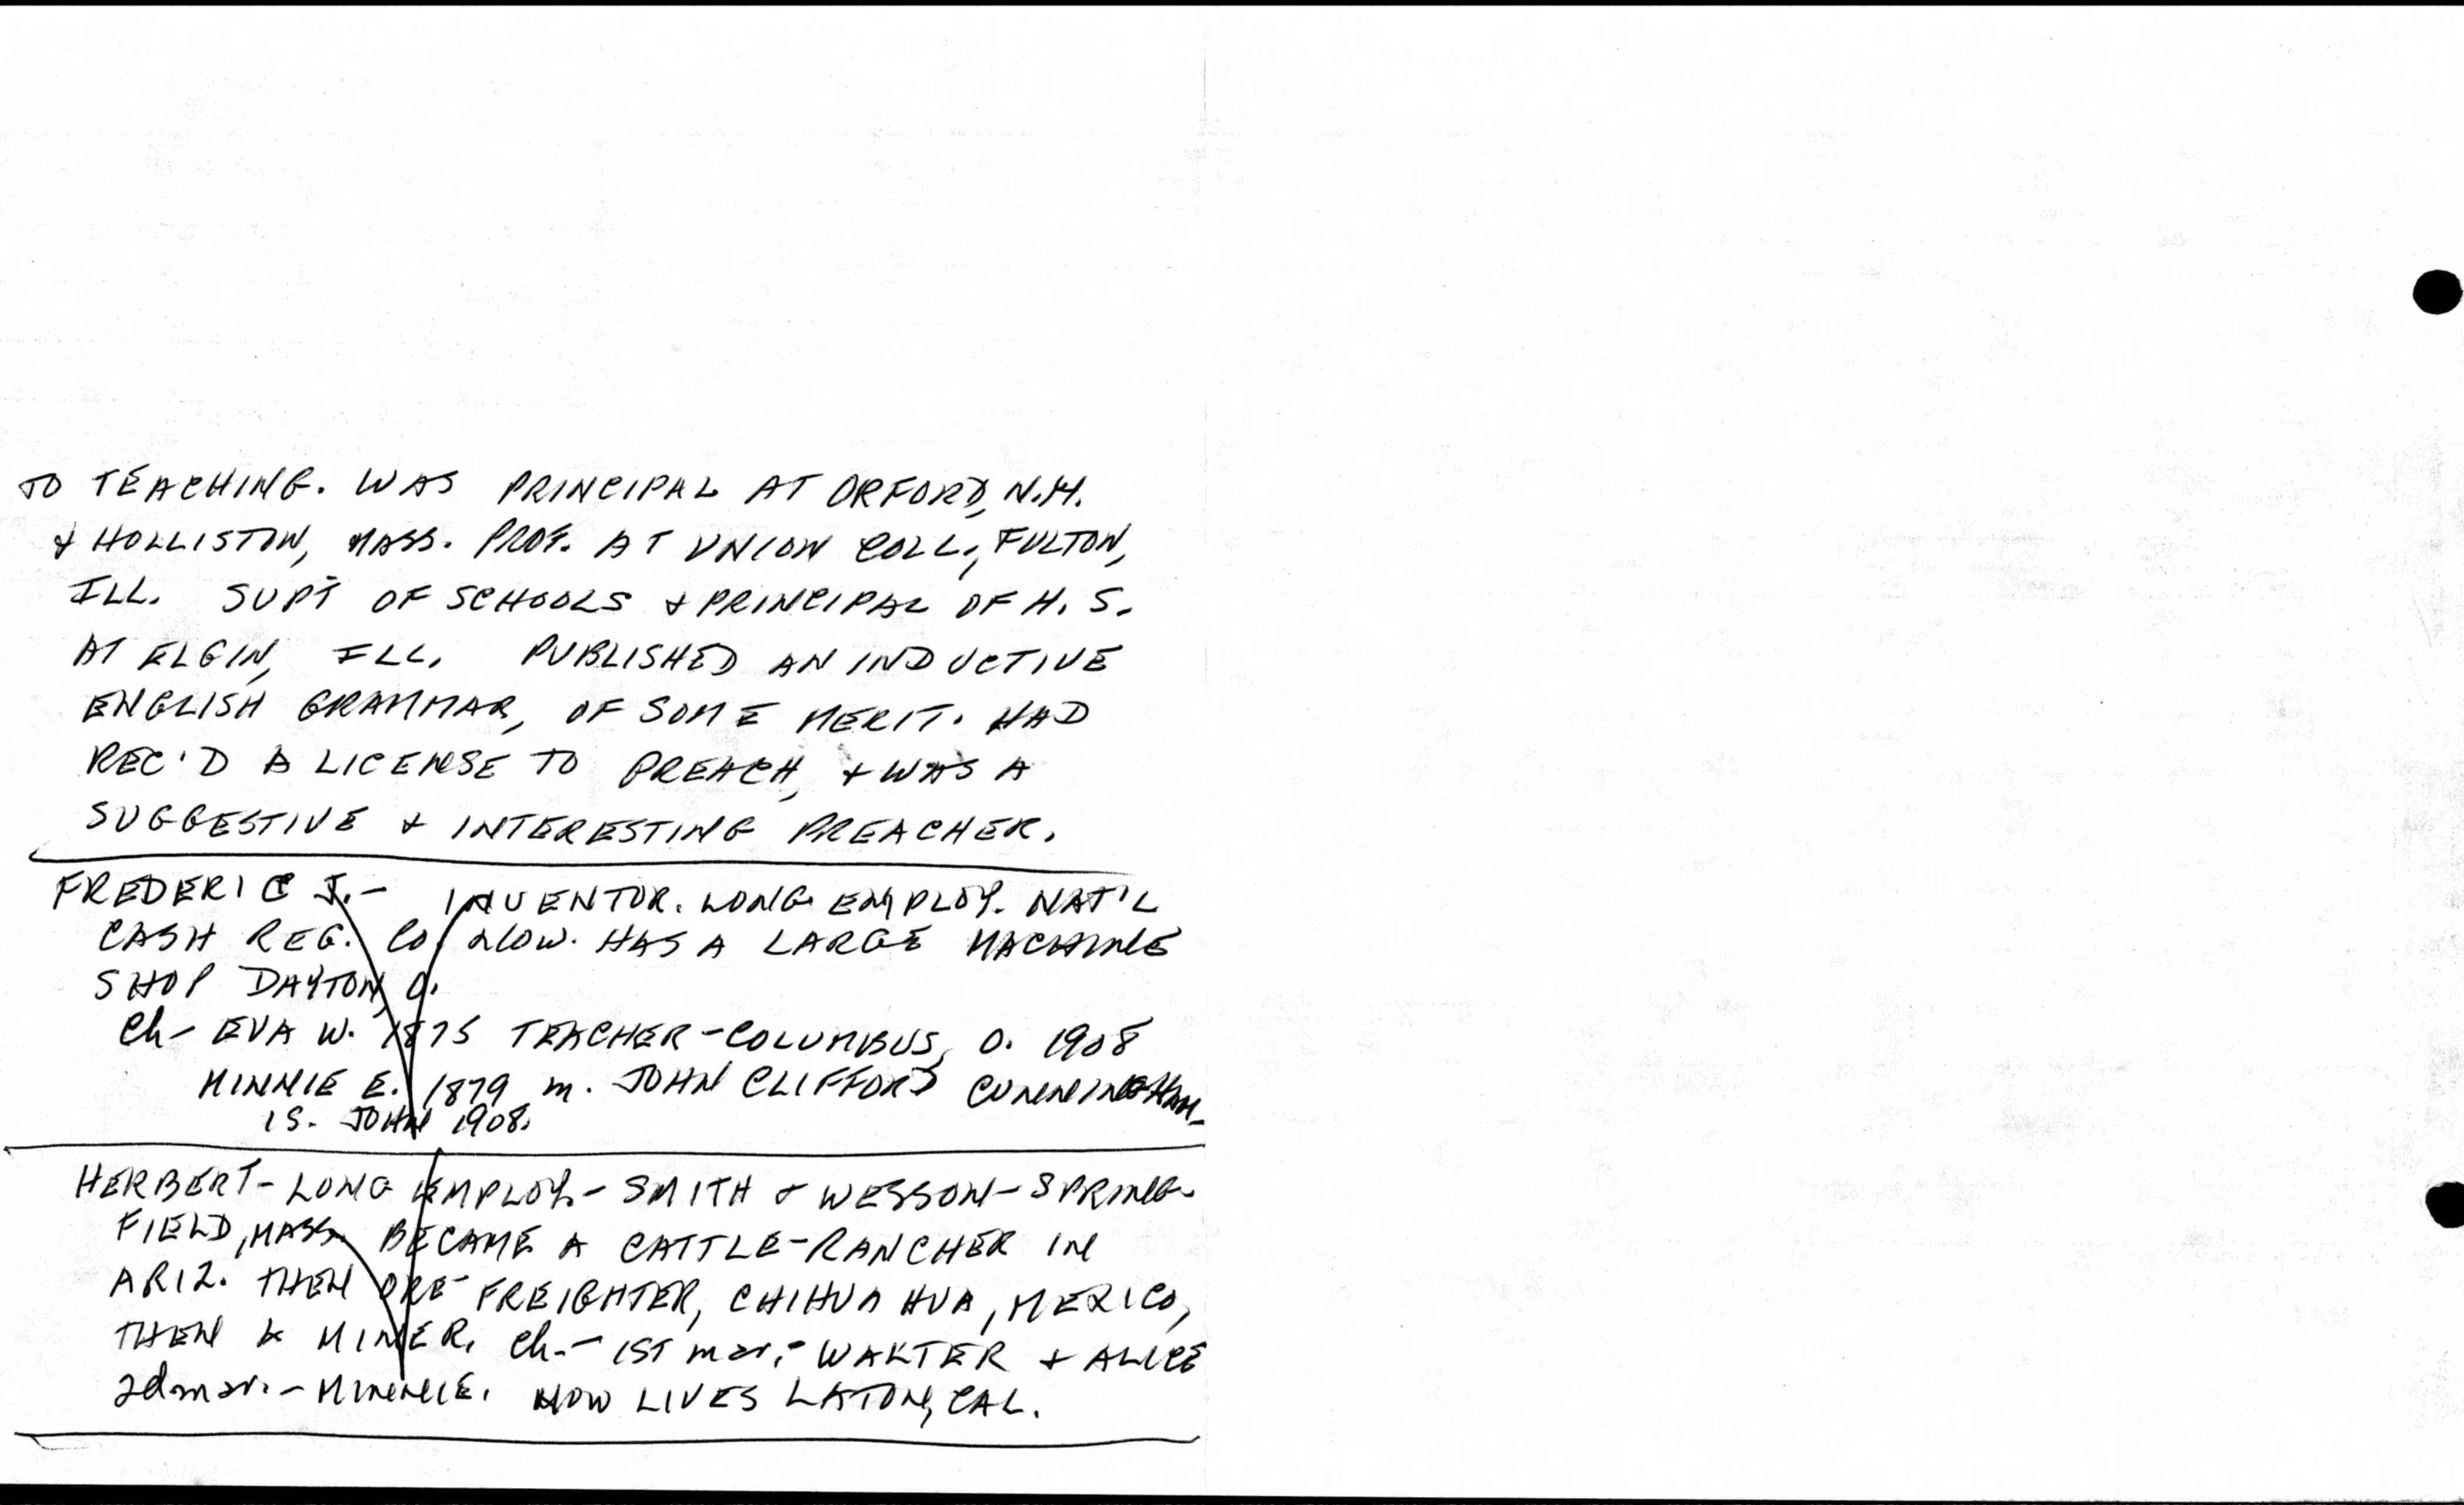 TO TEACHING. WAS PRINCIPAL AT ORFORD, N.H.
& HOLLISTON, MASS. PROF. AT UNION COLL., FULTON,
ILL. SUP'T OF SCHOOLS & PRINCIPAL OF H. S.
AT ELGIN, ILL. PUBLISHED AN INDUCTIVE
ENGLISH GRAMMAR, OF SOME MERIT. HAD
REC'D A LICENSE TO PREACH, & WAS A
SUGGESTIVE & INTERESTING PREACHER.
FREDERIC J. - INVENTOR. LONG EMPLOY. NAT'L
CASH REG. Co. Now. HAS A LARGE MACHINE
SHOP DAYTON, O.
Ch- EVA W. 1875 TEACHER - COLUMBUS, O. 1908
MINNIE E. 1879 m. JOHN CLIFFORD CUNNINGHAM-
IS. JOHN 1908.
HERBERT - LONG EMPLOY. - SMITH & WESSON - SPRING-
FIELD, MASS. BECAME A CATTLE-RANCHER IN
ARIZ. THEN ORE-FREIGHTER, CHIHUAHUA, MEXICO,
THEN A MINER. Ch. - 1ST mar. - WALTER & ALICE
2d mar. - MINNIE. NOW LIVES LATON, CAL.